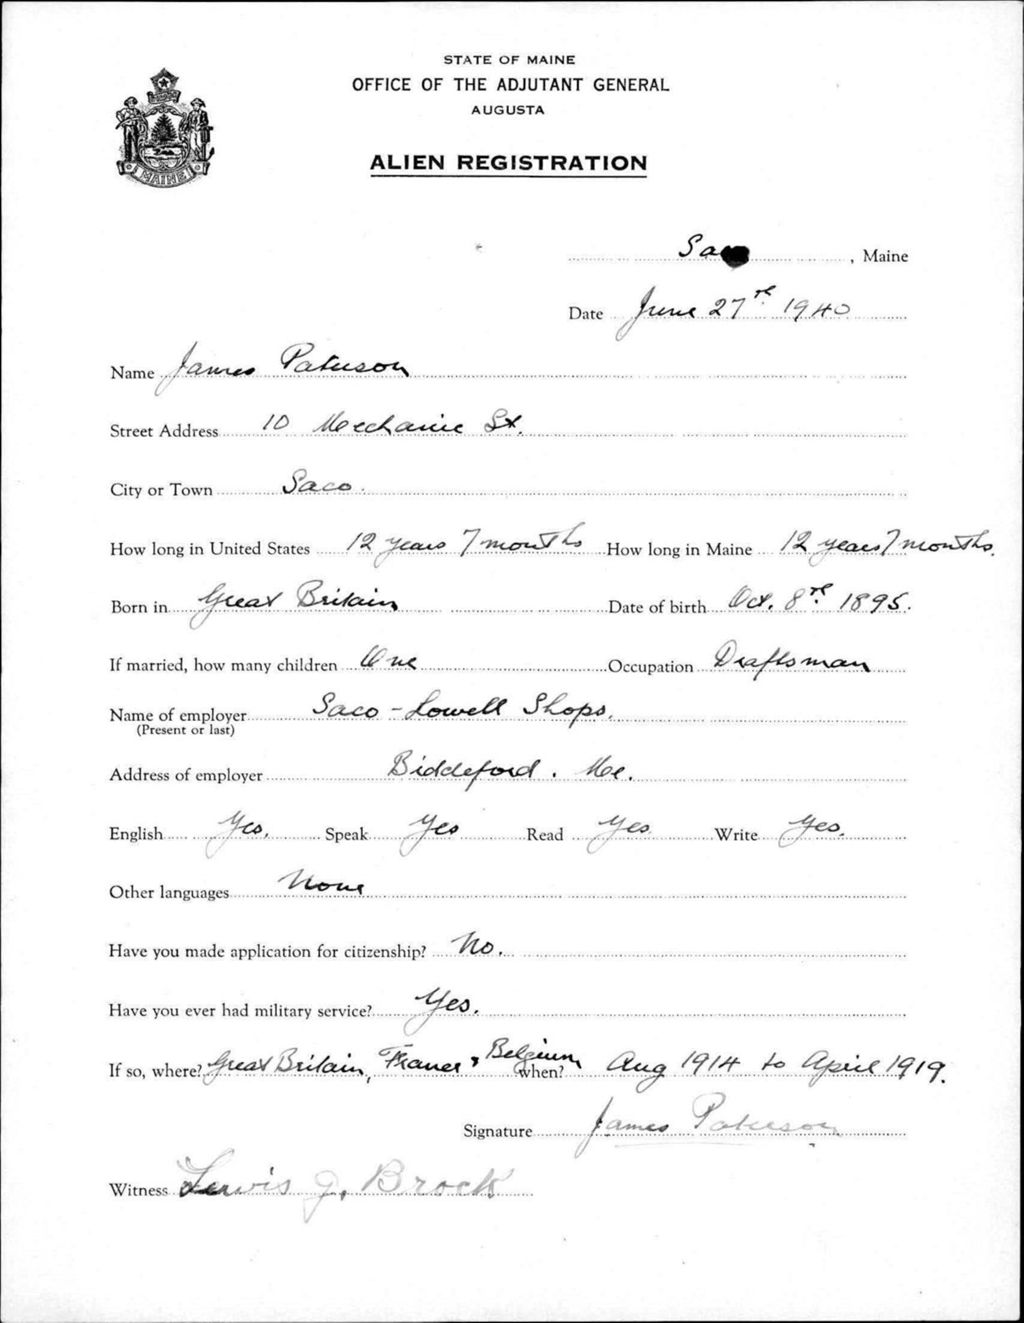 STATE OF MAINE
OFFICE OF THE ADJUTANT GENERAL
AUGUSTA
ALIEN REGISTRATION
MAINE
Saco, Maine
Date June 27th 1940
Name James Paterson
Street Address 10 Mechanic St.
City or Town Saco.
How long in United States 12 years 7 months How long in Maine 12 years 7 months.
Born in Great Britain Date of birth Oct. 8th. 1895.
If married, how many children One Occupation Draftsman
Name of employer Saco-Lowell Shops.
(Present or last)
Address of employer Biddeford. Me.
English Yes. Speak Yes Read Yes Write Yes.
Other languages None
Have you made application for citizenship? No.
Have you ever had military service? Yes.
If so, where? Great Britain, France & Belgium when? Aug 1914 to April 1919.
Signature James Paterson
Witness Lewis J. Brock